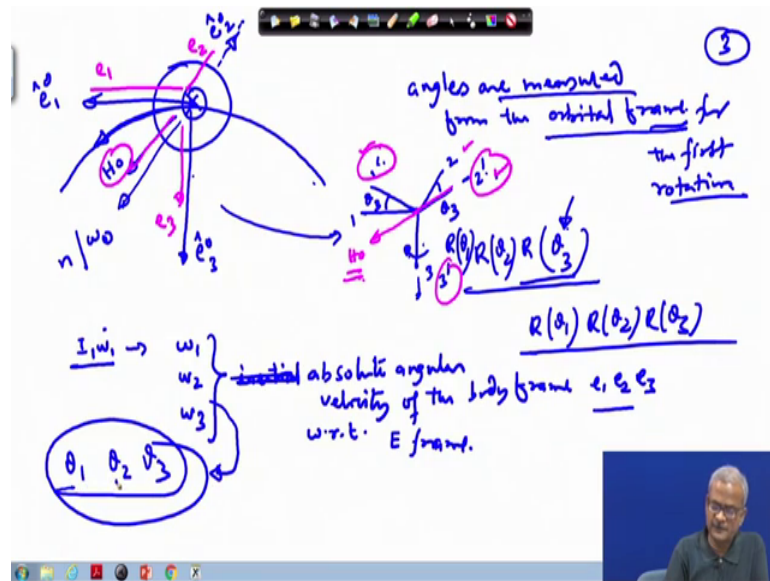 3
ê₂⁰
e₂
e₁
ê₁⁰
H₀
e₃
ê₃⁰
n/ω₀
angles are measured
from the orbital frame for
the first
rotation
1'
2
2'
θ₃
θ₃
1
H₀
3
3'
R(θ₁) R(θ₂) R(θ₃)
R(θ₁) R(θ₂) R(θ₃)
I₁ω̇₁ → ω₁
ω₂ absolute angular
velocity of the body frame e₁ e₂ e₃
ω₃
w.r.t. E frame.
θ₁ θ₂ θ₃